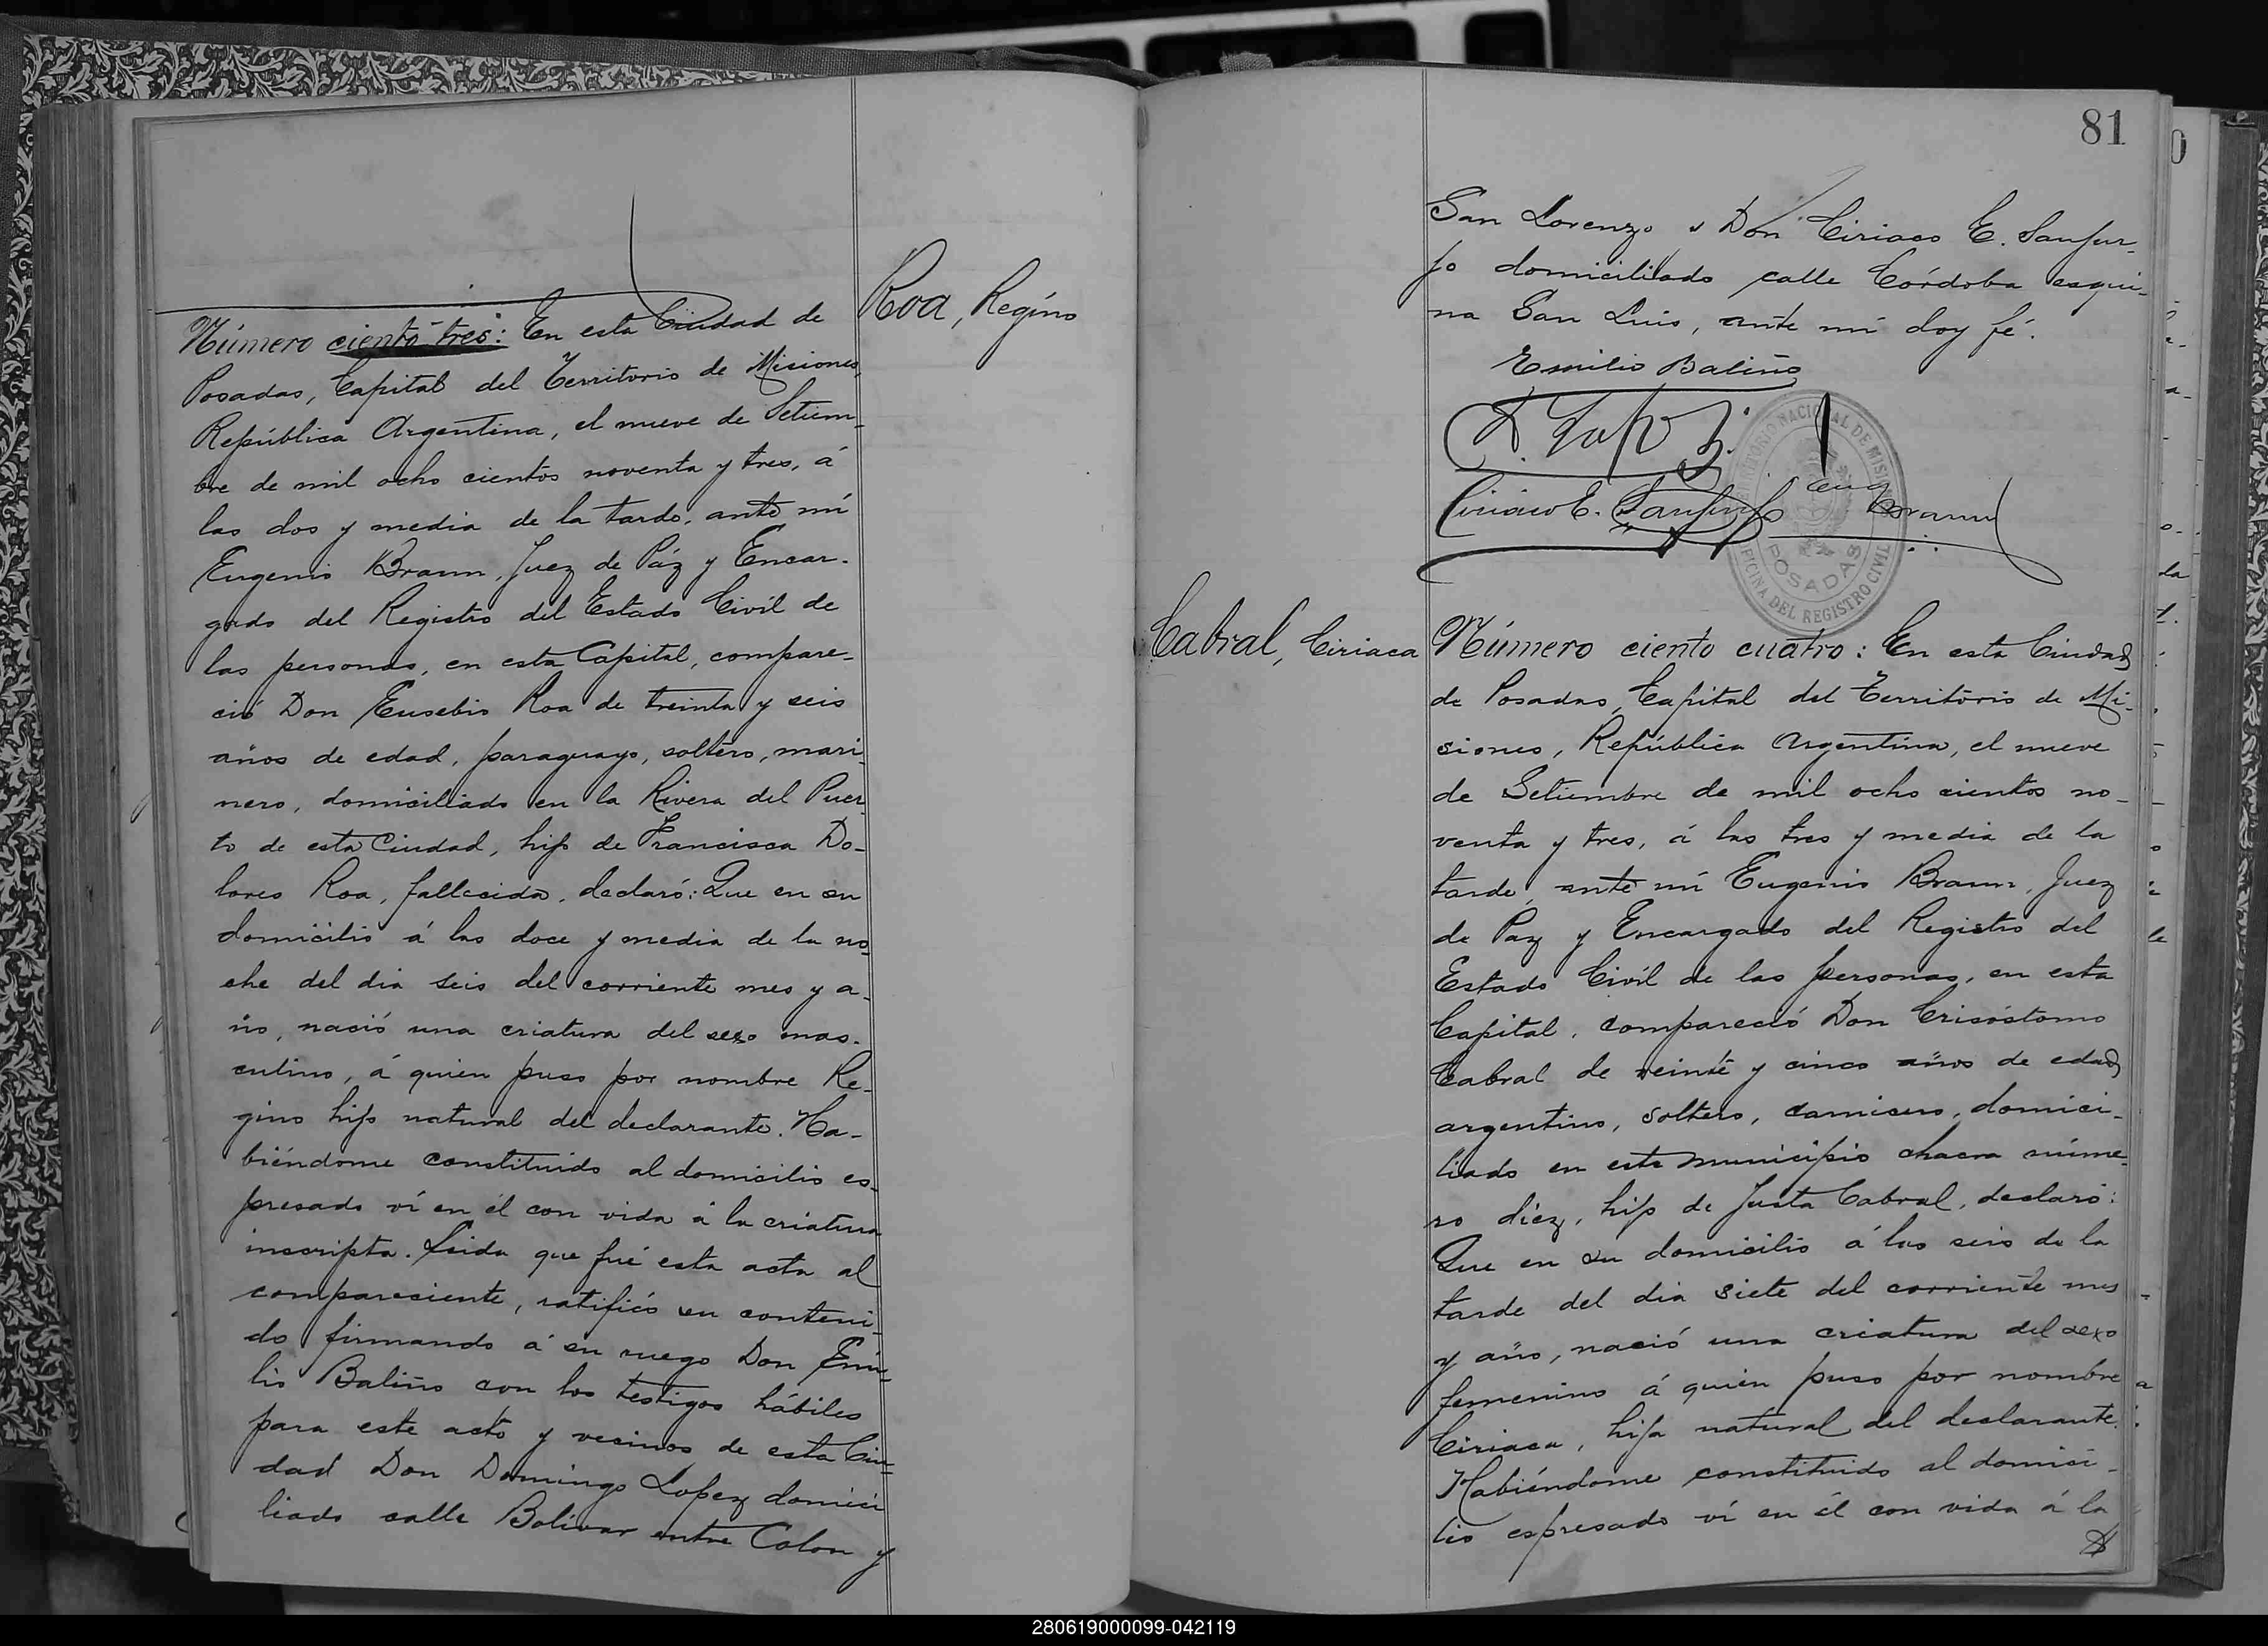 Roa, Regino
Número ciento tres: En esta Ciudad de
Posadas, Capital del Territorio de Misiones,
República Argentina, el nueve de Setiem-
bre de mil ocho cientos noventa y tres, á
las dos y media de la tarde, ante mí
Eugenio Braun, Juez de Páz y Encar-
gado del Registro del Estado Civíl de
las personas, en esta Capital, compare-
ció Don Eusebio Roa de treinta y seis
años de edad, paraguayo, soltero, mari-
nero, domiciliado en la Rivera del Puer
to de esta Ciudad, hijo de Francisca Do-
lores Roa, fallecida, declaró: Que en su
domicilio á las doce y media de la no-
che del dia seis del corriente mes y a-
ño, nació una criatura del sexo mas-
culino, á quien puso por nombre Re-
gino hijo natural del declarante. Ha-
biéndome constituido al domicilio es-
presado ví en él con vida á la criatura
inscripta. Leida que fué esta acta al
compareciente, ratificó su conteni-
do firmando á su ruego Don Emi-
lio Baliño con los testigos hábiles
para este acto y vecinos de esta Ciu-
dad Don Domingo Lopez domici
liado calle Bolívar entre Colon y
81
San Lorenzo y Don Ciriaco E. Sanjur-
jo domiciliado calle Córdoba esqui-
na San Luis, ante mí doy fé.
Emilio Baliño
D. Lopez
Ciriaco E. Sanjurjo Eug Braun
TERRITORIO NACIONAL DE MISIONES
POSADAS
OFICINA DEL REGISTRO CIVIL
Cabral, Ciriaca
Número ciento cuatro: En esta Ciudad
de Posadas, Capital del Territorio de Mi-
siones, República Argentina, el nueve
de Setiembre de mil ocho cientos no-
venta y tres, á las tres y media de la
tarde, ante mí Eugenio Braun, Juez
de Paz y Encargado del Registro del
Estado Civíl de las personas, en esta
Capital, compareció Don Crisóstomo
Cabral de veinte y cinco años de edad
argentino, soltero, carnicero, domici-
liado en este municipio chacra núme-
ro diez, hijo de Justa Cabral, declaró:
Que en su domicilio á las seis de la
tarde del dia siete del corriente mes
y año, nació una criatura del sexo
femenino á quien puso por nombre
Ciriaca, hija natural del declarante.
Habiéndome constituido al domici-
lio espresado ví en él con vida á la
280619000099-042119